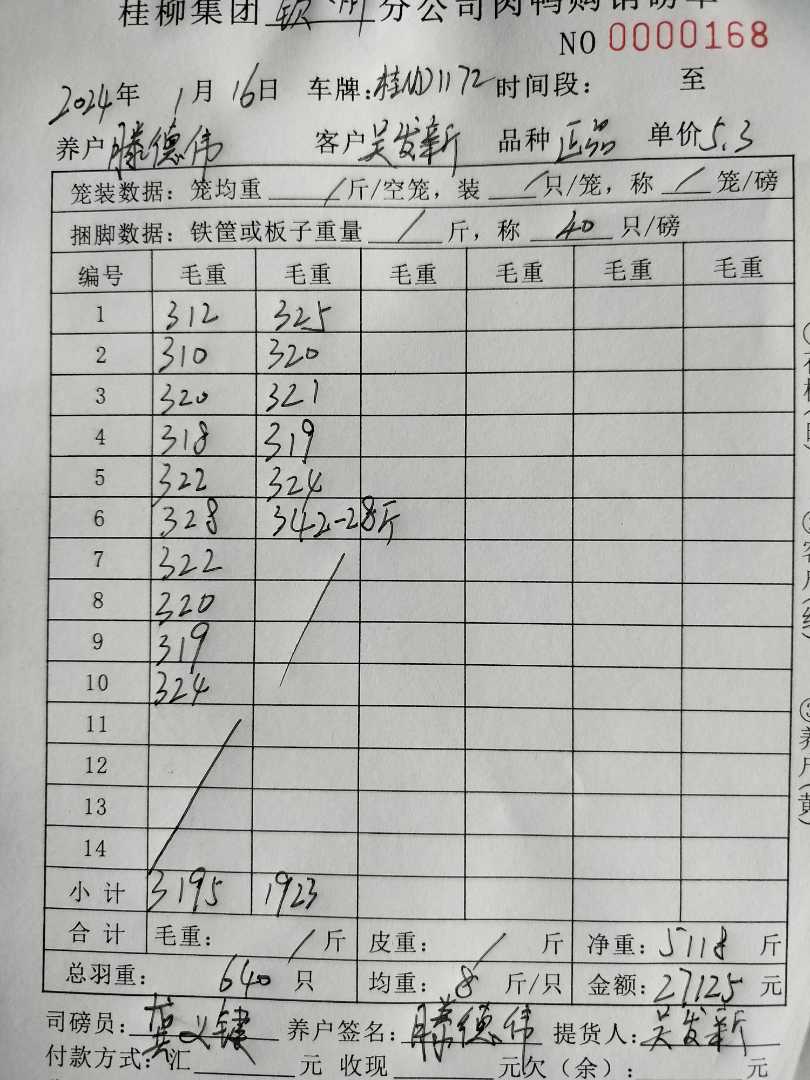 桂柳集团 钦州 分公司肉鸭购销磅单
NO 0000168
2024年 1月 16日 车牌: 1172 时间段: 至
养户 滕德伟 客户 吴发新 品种 正品 单价 5.3
笼装数据: 笼均重 / 斤/空笼, 装 / 只/笼, 称 / 笼/磅
捆脚数据: 铁筐或板子重量 / 斤, 称 40 只/磅
编号 毛重 毛重 毛重 毛重 毛重 毛重
1 312 325
2 310 320
3 320 321
4 318 319
5 322 324
6 328 342-28斤
7 322
8 320
9 319
10 324
11
12
13
14
小计 3195 1923
合计 毛重: / 斤 皮重: / 斤 净重: 5118 斤
总羽重: 640 只 均重: 8 斤/只 金额: 27125 元
司磅员: 养户签名: 滕德伟 提货人: 吴发新
付款方式: 汇 元 收现 元欠(余): 元